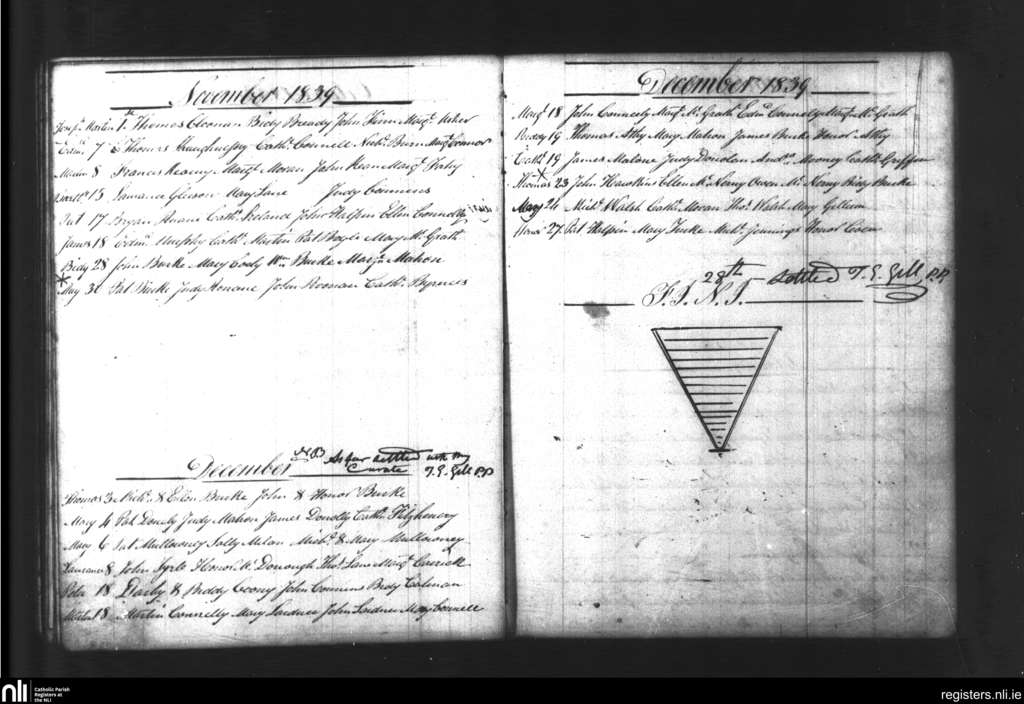 November 1839
Joseph Martin 1st Thomas Cloonan Bidy Bready John Kirwn Margt Usher
Edm. 7 Thomas Shaughnessy Cathe Connell Richd Burn Margt Connor
Martin 8 Francis Kearny Margt Moran John Kean Margt Fahy
13 Lawrance Gleeson Mary Lane Judy Commins
Pat 17 Bryan Ruane Cathe Ireland John Halpin Ellen Connolly
James 18 Edm. Murphy Cathe Martin Pat Boyle Mary Mc Grath
Bidy 28 John Burke Mary Cody Wm Burke Margt Mahon
May 30 Pat Burke Judy Ronane John Noonan Cathe Byrnes
December
NB As far settled with my
Curate T. E. Gill P.P
Thomas 3 Richd & Ellen Burke John & Honor Burke
Mary 4 Pat Donely Judy Mahon James Donolly Cathe Fitzhenry
Mary 6 Pat Mullowney Sally Milan Michl & Mary Mullowney
Laurance 8 John Honor Mc Donough Thos Lane Margt Carrick
Peter 18 Darby & Biddy Coony John Commins Bidy Colman
Martin 18 Martin Connelly Mary Lardner John Lardner Mary Connell
December 1839
Margt 18 John Conneely Margt Mc Grath Edm Connelly Margt Mc Grath
Biddy 19 Thomas Athy Mary Mahon James Burke Honor Athy
Cathe 19 James Malone Judy Donolan Andw Mooney Cathe Griffin
Thomas 23 John Hawkins Ellen Mc Nerny Owen Mc Nerny Biddy Burke
Mary 24 Michl Walsh Cathe Moran Thos Walsh Mary Gilleran
Honor 27 Pat Halpin Mary Burke Michl Jennings Honor Coen
28th settled T. E. Gill P.P
F. I. N. I.
nli
Catholic Parish
Registers at
the NLI
registers.nli.ie